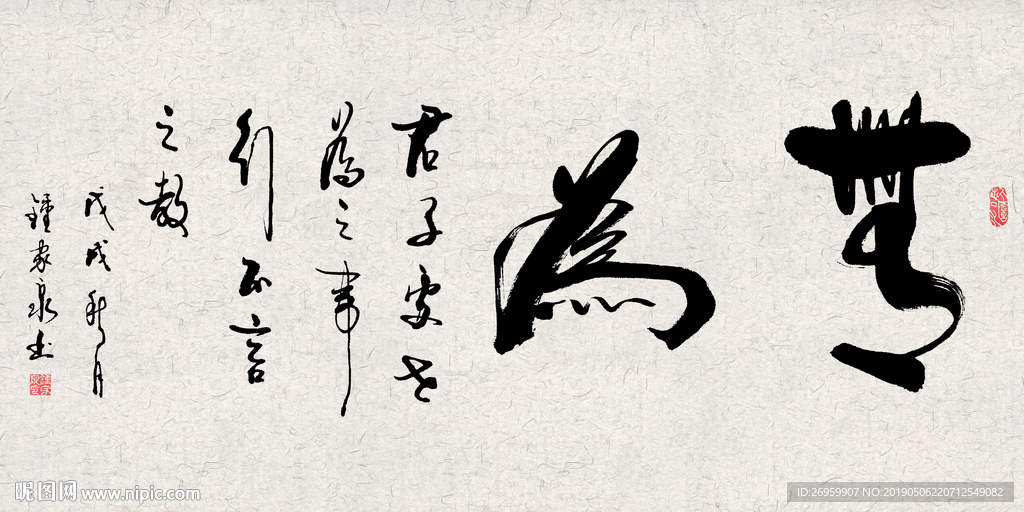 無為
君子處無
為之事
行不言
之教
戊戌秋月
鍾家泉书
昵图网 www.nipic.com
ID:26959907 NO:20190506220712549082